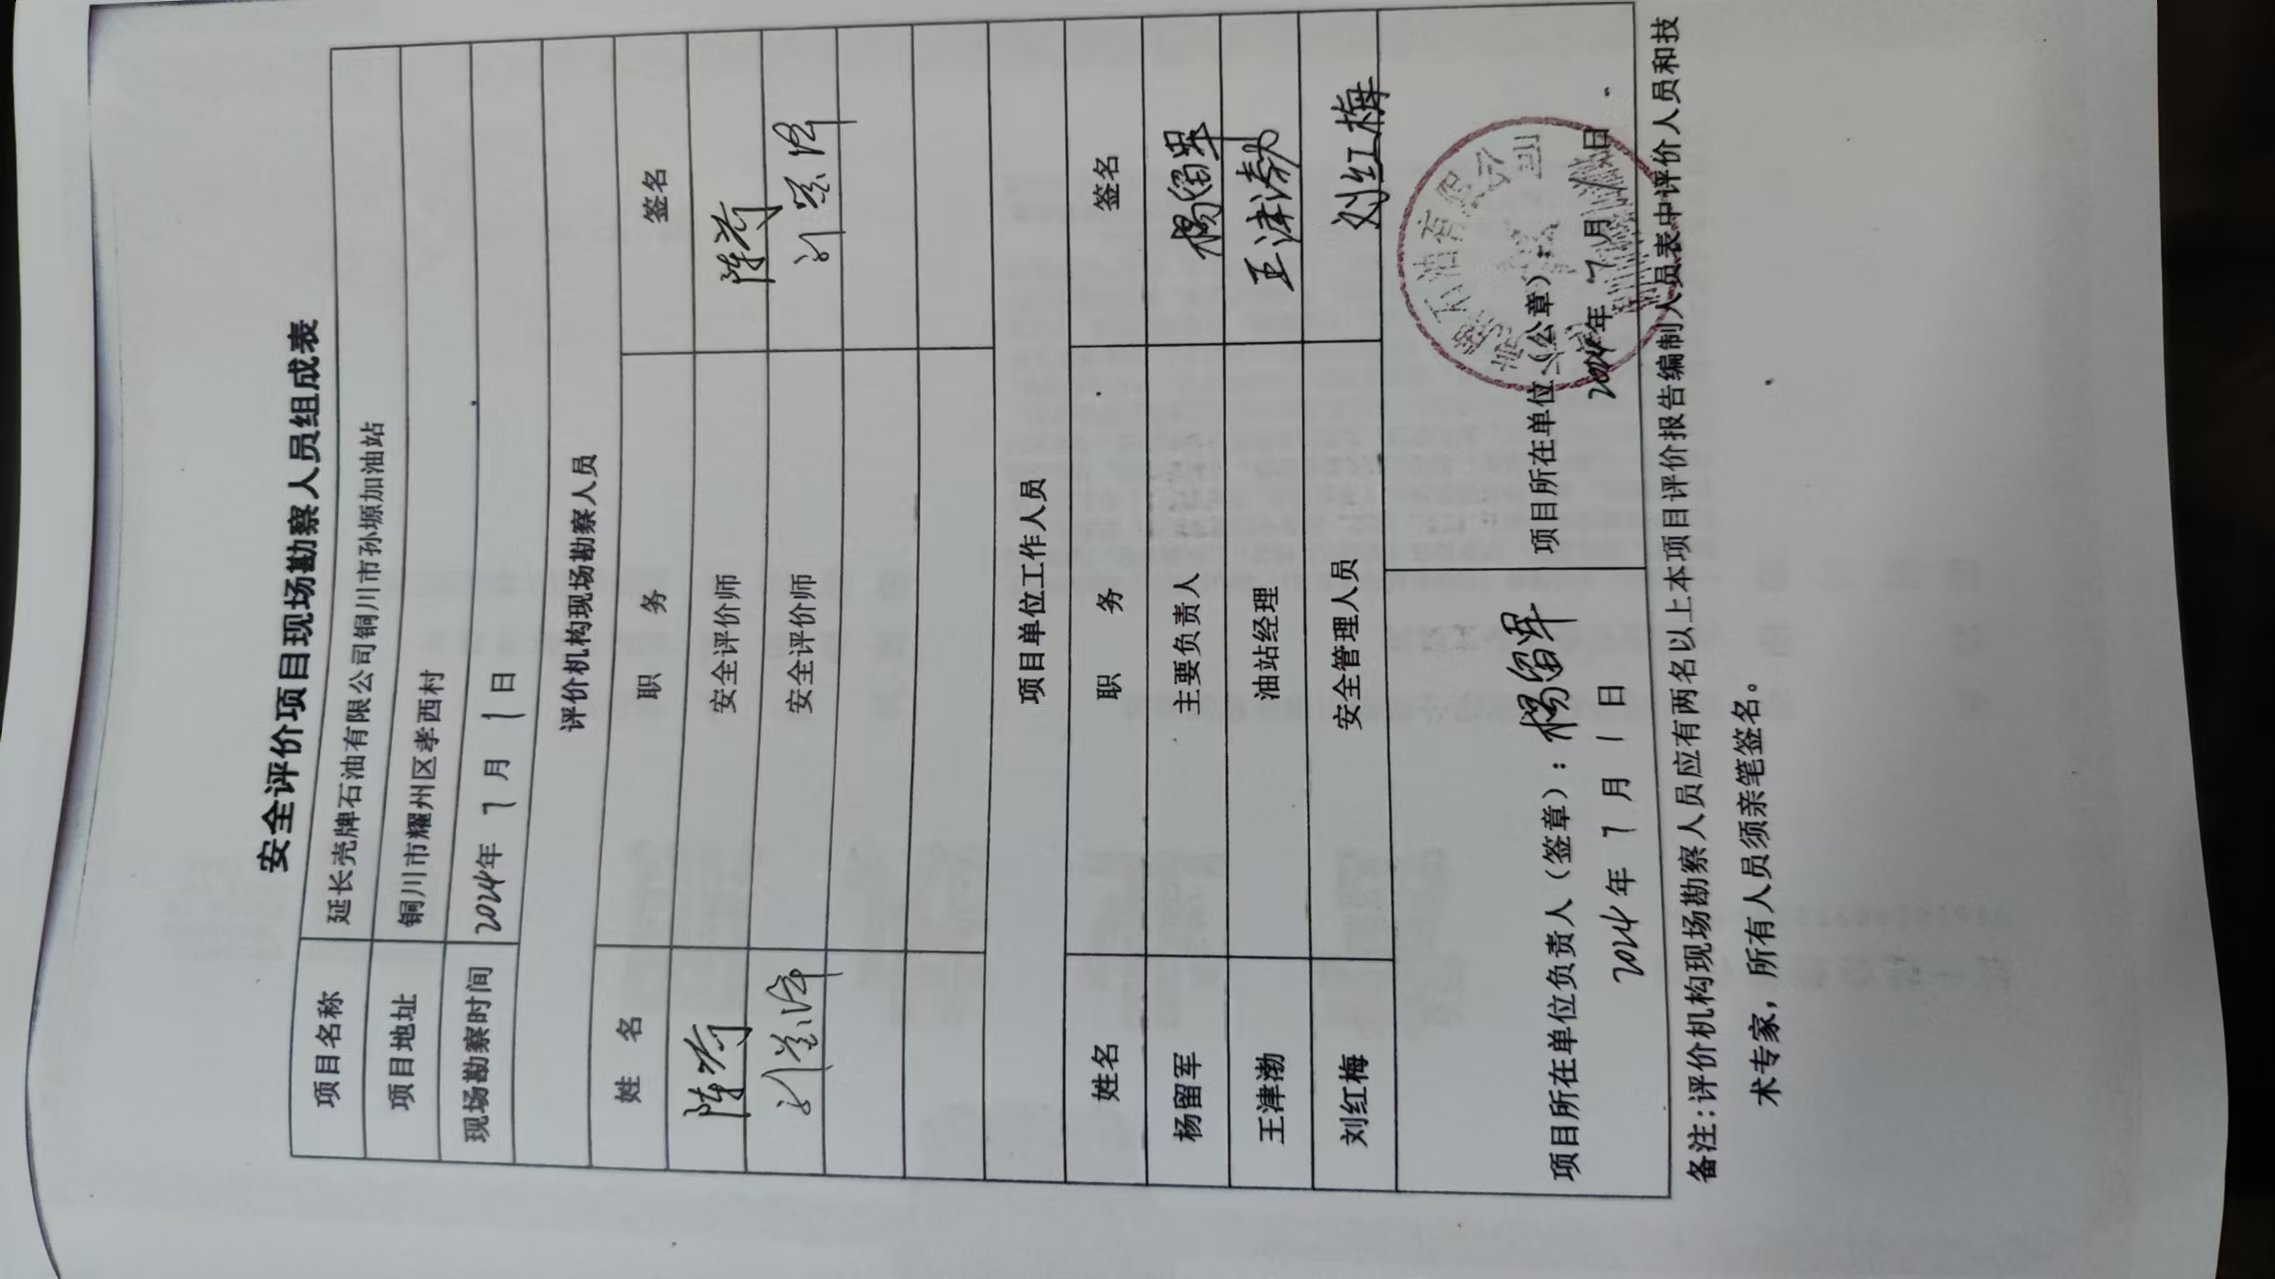 安全评价项目现场勘察人员组成表
项目名称 延长壳牌石油有限公司铜川市孙塬加油站
项目地址 铜川市耀州区孝西村
现场勘察时间 2024年 7 月 1 日
评价机构现场勘察人员
姓 名 职 务 签名
陈芳 安全评价师 陈芳
安全评价师
项目单位工作人员
姓名 职 务 签名
杨留军 主要负责人 杨留军
王津渤 油站经理 王津渤
刘红梅 安全管理人员 刘红梅
项目所在单位负责人（签章）：杨留军 项目所在单位（公章）：
2024年 7 月 1 日 2024年 7 月 1 日
石油有限公司
备注:评价机构现场勘察人员应有两名以上本项目评价报告编制人员表中评价人员和技
术专家，所有人员须亲笔签名。